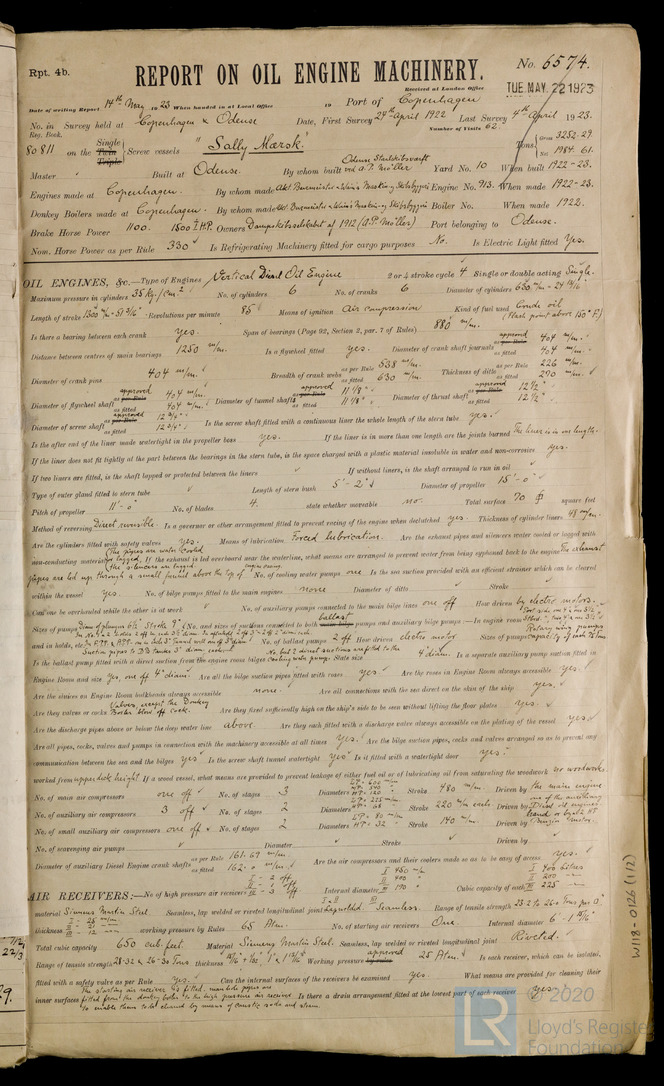 Rpt. 4b.
REPORT ON OIL ENGINE MACHINERY.
No. 6574.
Received at London Office TUE. MAY. 22 1923
Date of writing Report 14th May 1923 When handed in at Local Office 19 Port of Copenhagen
No. in Survey held at Copenhagen & Odense Date, First Survey 24th April 1922 Last Survey 4th April 1923.
Reg. Book. Number of Visits 62.
80811 on the Single Twin Triple Screw vessels "Sally Mærsk." Tons Gross 3252.29 Net 1984.61
Master Built at Odense. By whom built Odense Staalskibsværft ved A.P. Møller Yard No. 10 When built 1922-23.
Engines made at Copenhagen. By whom made Akt. Burmeister & Wain's Maskin og Skibsbyggeri Engine No. 913. When made 1922-23.
Donkey Boilers made at Copenhagen. By whom made Akt. Burmeister & Wain's Maskin og Skibsbyggeri Boiler No. When made 1922.
Brake Horse Power 1100. 1500 I.H.P. Owners Dampskibsselskabet af 1912 (A.P. Møller) Port belonging to Odense.
Nom. Horse Power as per Rule 330 Is Refrigerating Machinery fitted for cargo purposes No. Is Electric Light fitted Yes.
OIL ENGINES, &c.—Type of Engines Vertical Diesel Oil Engine 2 or 4 stroke cycle 4 Single or double acting Single.
Maximum pressure in cylinders 35 kg/cm.² No. of cylinders 6 No. of cranks 6 Diameter of cylinders 630 m/m - 24 13/16"
Length of stroke 1300 m/m - 51 3/16" Revolutions per minute 85 Means of ignition Air compression Kind of fuel used Crude oil (Flash point above 150° F.)
Is there a bearing between each crank yes. Span of bearings (Page 92, Section 2, par. 7 of Rules) 880 m/m.
Distance between centres of main bearings 1250 m/m. Is a flywheel fitted yes. Diameter of crank shaft journals approved as per Rule 404 m/m. as fitted 404 m/m.
Diameter of crank pins 404 m/m. Breadth of crank webs as per Rule 538 m/m. as fitted 630 m/m. Thickness of ditto as per Rule 226 m/m. as fitted 290 m/m.
Diameter of flywheel shaft approved as per Rule 404 m/m. as fitted 404 m/m. Diameter of tunnel shaft approved as per Rule 11 7/8" as fitted 11 7/8" Diameter of thrust shaft approved as per Rule 12 1/2" as fitted 12 1/2"
Diameter of screw shaft approved as per Rule 12 3/4" as fitted 12 3/4" Is the screw shaft fitted with a continuous liner the whole length of the stern tube yes.
Is the after end of the liner made watertight in the propeller boss yes. If the liner is in more than one length are the joints burned The liner is in one length.
If the liner does not fit tightly at the part between the bearings in the stern tube, is the space charged with a plastic material insoluble in water and non-corrosive yes.
If two liners are fitted, is the shaft lapped or protected between the liners If without liners, is the shaft arranged to run in oil
Type of outer gland fitted to stern tube Length of stern bush 5'-2" Diameter of propeller 15'-0"
Pitch of propeller 11'-0" No. of blades 4. state whether moveable no. Total surface 70 square feet
Method of reversing Direct reversible. Is a governor or other arrangement fitted to prevent racing of the engine when declutched yes. Thickness of cylinder liners 48 m/m.
Are the cylinders fitted with safety valves yes. Means of lubrication Forced lubrication. Are the exhaust pipes and silencers water cooled or lagged with
non-conducting material The pipes are water cooled the silencers are lagged. If the exhaust is led overboard near the waterline, what means are arranged to prevent water from being syphoned back to the engine The exhaust
pipes are led up through a small funnel above the top of No. of cooling water pumps one. Is the sea suction provided with an efficient strainer which can be cleared
within the vessel yes. No. of bilge pumps fitted to the main engines none Diameter of ditto Stroke
Can one be overhauled while the other is at work No. of auxiliary pumps connected to the main bilge lines one off How driven by electro motors.
Sizes of pumps Diam. of plunger 6 1/2" Stroke 9" No. and sizes of suctions connected to both main bilge ballast pumps and auxiliary bilge pumps :—In engine room
and in holds, etc. No. of ballast pumps 2 off How driven electro motor Sizes of pumps
Is the ballast pump fitted with a direct suction from the engine room bilges State size 4" diam. Is a separate auxiliary pump suction fitted in
Engine Room and size Yes, one off 4" diam. Are all the bilge suction pipes fitted with roses yes. Are the roses in Engine Room always accessible yes.
Are the sluices on Engine Room bulkheads always accessible none. Are all connections with the sea direct on the skin of the ship yes.
Are they valves or cocks Valves, except the Donkey Boiler blow off cock. Are they fixed sufficiently high on the ship's side to be seen without lifting the floor plates yes.
Are the discharge pipes above or below the deep water line above. Are they each fitted with a discharge valve always accessible on the plating of the vessel yes.
Are all pipes, cocks, valves and pumps in connection with the machinery accessible at all times yes. Are the bilge suction pipes, cocks and valves arranged so as to prevent any
communication between the sea and the bilges yes Is the screw shaft tunnel watertight yes Is it fitted with a watertight door yes.
worked from upper deck height If a wood vessel, what means are provided to prevent leakage of either fuel oil or of lubricating oil from saturating the woodwork no woodwork.
No. of main air compressors one off No. of stages 3 Diameters Stroke 480 m/m. Driven by the main engine
No. of auxiliary air compressors 3 off No. of stages 2 Diameters Stroke 220 m/m each Driven by
No. of small auxiliary air compressors one off No. of stages 2 Diameters LP. 80 m/m HP. 32 m/m Stroke 140 m/m. Driven by
No. of scavenging air pumps Diameter Stroke Driven by
Diameter of auxiliary Diesel Engine crank shafts as per Rule 161.67 m/m. as fitted 162 m/m. Are the air compressors and their coolers made so as to be easy of access yes.
AIR RECEIVERS:—No. of high pressure air receivers I - 2 off II - 1 off III - 3 off Internal diameter I 450 m/m II 400 III 190 Cubic capacity of each I 400 litres II 200 III 225
material Siemens Martin Steel. Seamless, lap welded or riveted longitudinal joint Seamless. Range of tensile strength
thickness I - 25 m/m II - 21 III - 12 working pressure by Rules 65 Atm. No. of starting air receivers One. Internal diameter 6'-1 15/16"
Total cubic capacity 650 cub. feet. Material Siemens Martin Steel. Seamless, lap welded or riveted longitudinal joint Riveted.
Range of tensile strength 28-32 & 26-30 Tons thickness Working pressure approved by Rules 25 Atm. Is each receiver, which can be isolated,
fitted with a safety valve as per Rule yes. Can the internal surfaces of the receivers be examined yes. What means are provided for cleaning their
inner surfaces The starting air receiver is fitted. manhole pipes are fitted from the donkey boiler to the high pressure air receivers to enable them to be cleaned by means of caustic soda and steam. Is there a drain arrangement fitted at the lowest part of each receiver yes.
W118-0126 (1/2)
© 2020
LR
Lloyd's Register
Foundation